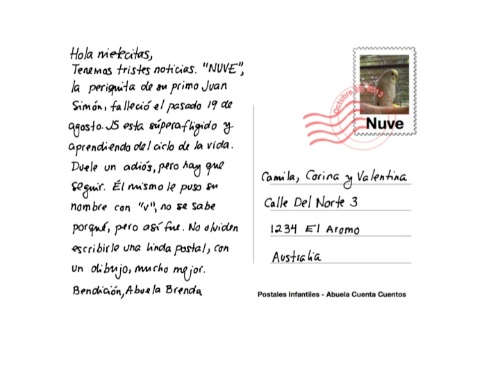 Hola nietecitas,
Tenemos tristes noticias. "NUVE",
la periquita de su primo Juan
Simón, falleció el pasado 19 de
agosto. JS esta súperafligido y
aprendiendo del ciclo de la vida.
Duele un adiós, pero hay que
seguir. Él mismo le puso su
nombre con "v", no se sabe
porqué, pero así fue. No olviden
escribirle una linda postal, con
un dibujo, mucho mejor.
Bendición, Abuela Brenda
Nuve
Camila, Corina y Valentina
Calle Del Norte 3
1234 El Aromo
Australia
Postales Infantiles - Abuela Cuenta Cuentos